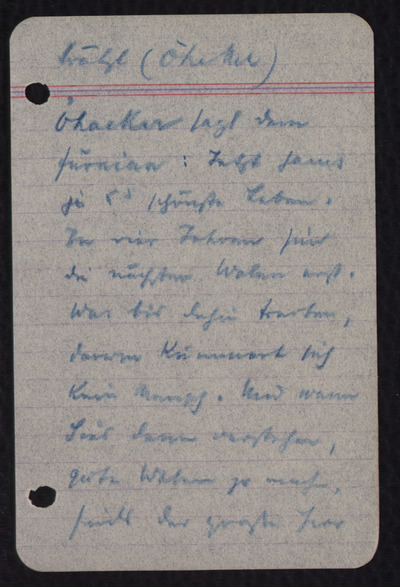 (Öhacker)
Öhacker sagt dem
: Jetzt hams
ja 's schönste Leben.
In vier Jahren sind
die nächsten Wahlen erst.
Was bis dahin treiben,
darum kümmert sich
kein Mensch. Und wann
Sies dann verstehen,
gute Wahlen zu machn,
sinds der größte Herr